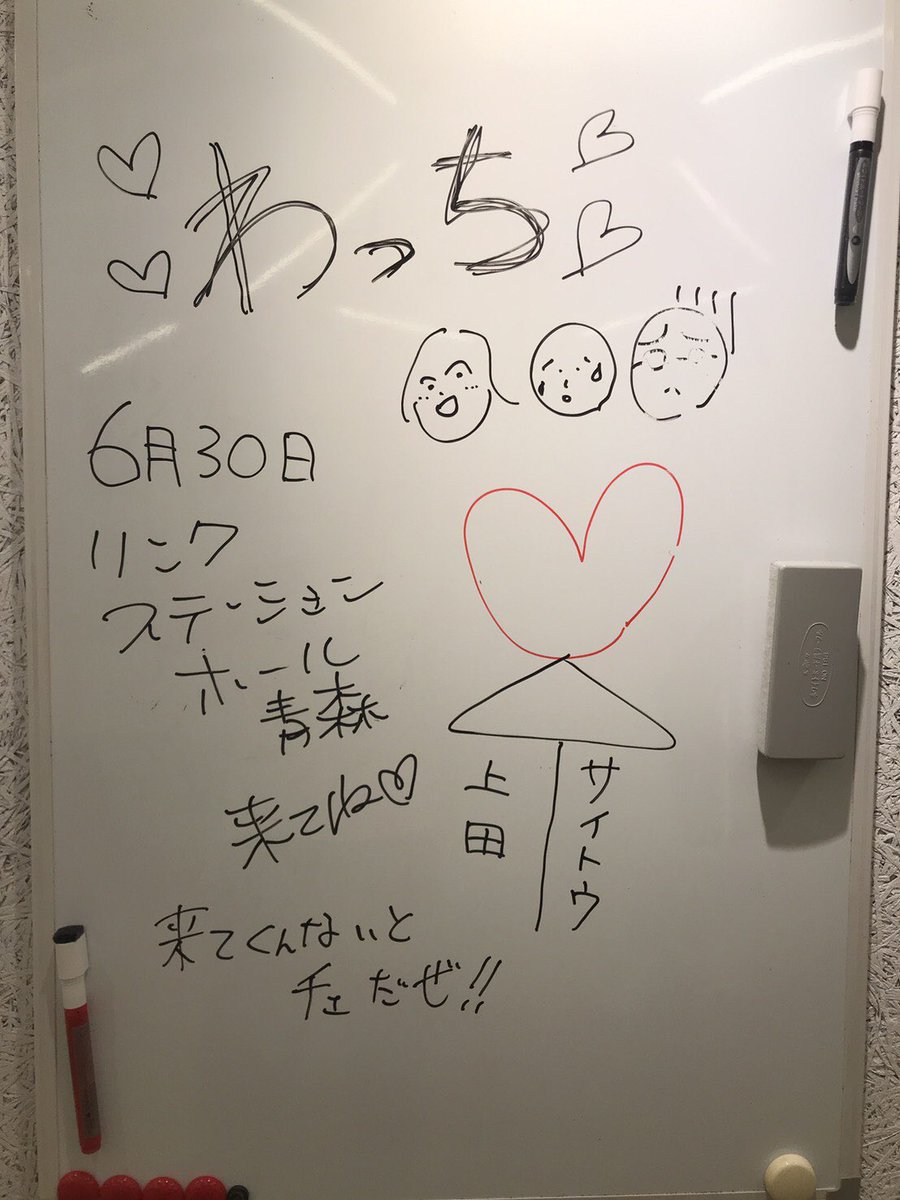 わっち
6月30日
リンク
ステーション
ホール
青森
来てね
上田
サイトウ
来てくんないと
チェだぜ!!